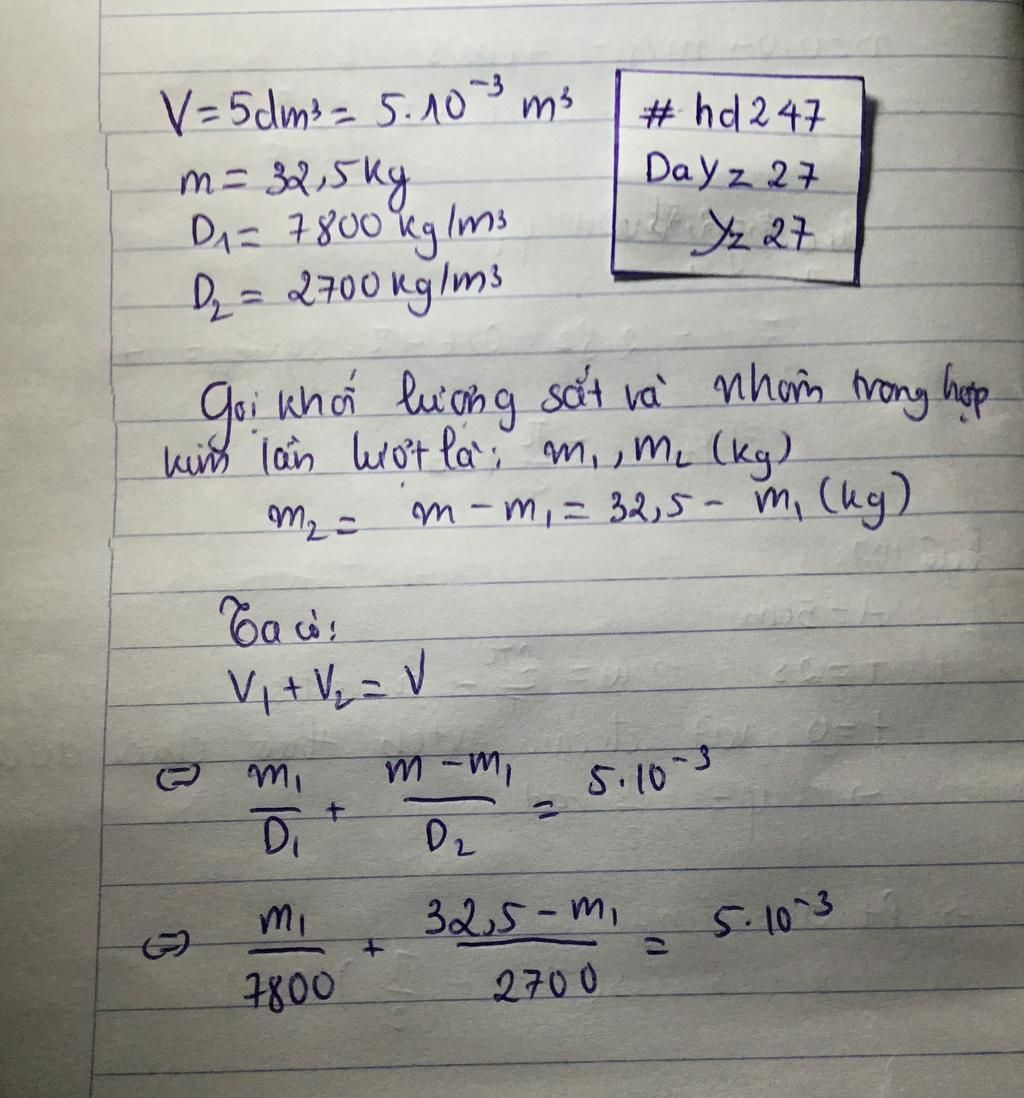 V = 5dm³ = 5.10⁻³ m³
m = 32,5 kg
D₁ = 7800 kg/m³
D₂ = 2700 kg/m³
# hd247
Dayz 27
Yz 27
Gọi khối lượng sắt và nhôm trong hợp
kim lần lượt là: m₁, m₂ (kg)
m₂ = m - m₁ = 32,5 - m₁ (kg)
Ta có:
V₁ + V₂ = V
⇔ m₁/D₁ + (m - m₁)/D₂ = 5.10⁻³
⇔ m₁/7800 + (32,5 - m₁)/2700 = 5.10⁻³